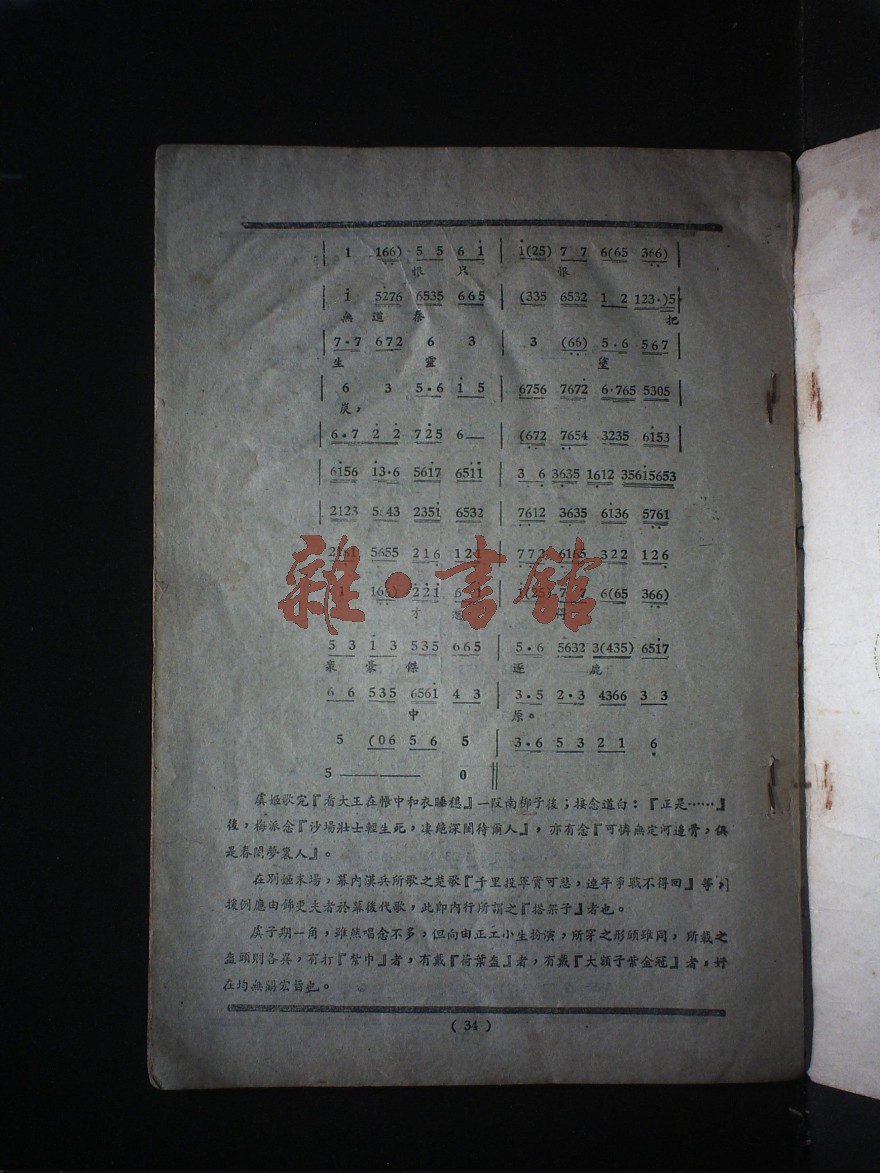 1 166) 5 5 6 i | i(25) 7 7 6(65 366) |
恨 只 恨
i 5276 6535 665 | (335 6532 1 2 123·)5
無 道 秦 把
7·7 672 6 3 | 3 (66) 5·6 567 |
生 靈 塗
6 3 5·6 i 5 | 6756 7672 6·765 5305 |
炭，
6·7 2 2 725 6— | (672 7654 3235 6i53 |
6i56 i3·6 56i7 65ii | 3 6 3635 1612 356i5653
2123 5643 235i 6532 | 7612 3635 6i36 5761
5655 216 | 322 126
6(65 366)
才
5 3 i 3 535 665 | 5·6 5632 3(435) 65i7
衆 豪 傑 逐 鹿
6 6 535 656i 4 3 | 3·5 2·3 4366 3 3
中 原。
5 (06 5 6 5 | 3·6 5 3 2 1 6
5 ——— 0
虞姬歌完『看大王在帳中和衣睡穩』一段南梆子後；接念道白：『正是……』
後，梅派念『沙場壯士輕生死，凄絶深閨待爾人』，亦有念『可憐無定河邊骨，俱
是春閨夢裏人』。
在别姬末場，幕内漢兵所歌之楚歌『千里投軍實可悲，連年爭戰不得回』等句
援例應由飾更夫者於幕後代歌，此即内行所謂之『搭架子』者也。
虞子期一角，雖然唱念不多，但向由正工小生扮演，所穿之形頭雖同，所戴之
盔頭則各異，有打『紮巾』者，有戴『荷葉盔』者，有戴『大額子紫金冠』者，好
在均無關宏旨也。
( 34 )
雜·書館